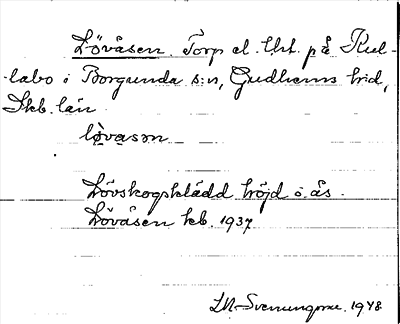 Lövåsen. Torp el. lht. på Kul-
labo i Borgunda s:n, Gudhems hrd,
Skb. län
lòvasm
Lövskogsklädd höjd o. ås.
Lövåsen kb. 1937
Svenungsson. 1948